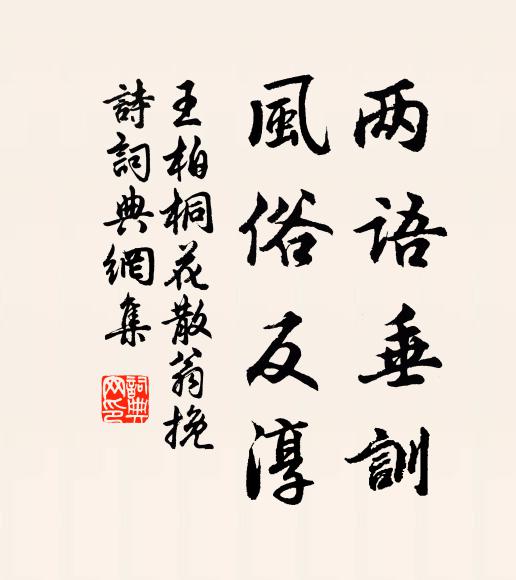 两语垂訓
風俗反淳
王柏桐花散翁挽
詩詞典網集
詞典
网印